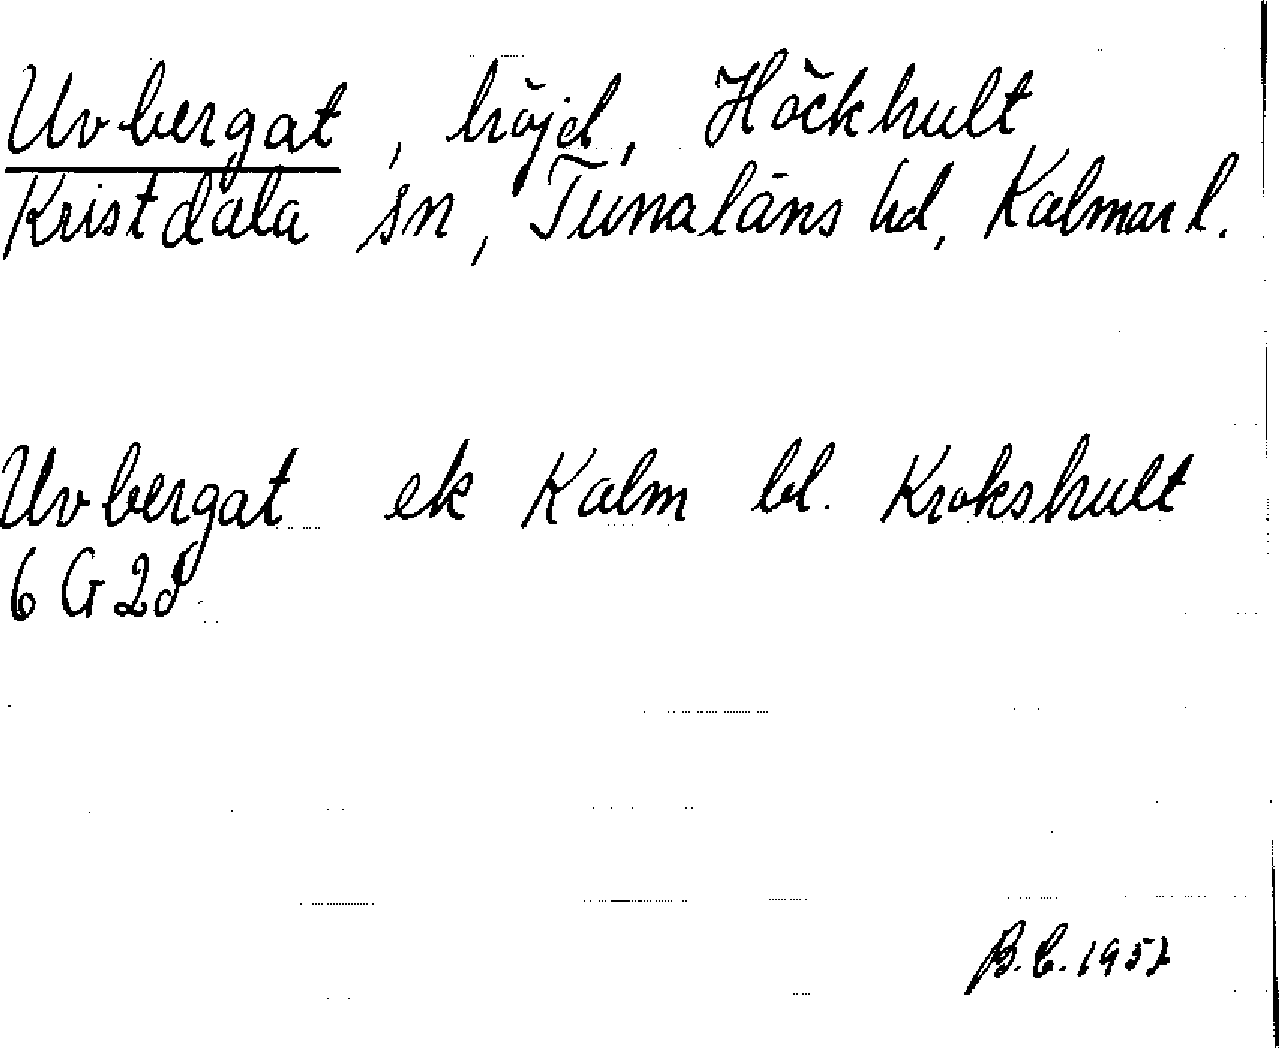 Uvbergat, höjd, Höckhult
Kristdala sn, Tunaläns hd, Kalmar l.
Uvbergat ek Kalm bl. Krokshult
6 G 2d
B.C. 1952